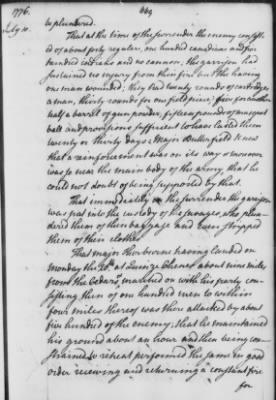 1776.
July 10.
569
be plundered.
That at the time of the surrender the enemy consist
ed of about forty regulars, one hundred canadians and five
hundred indians and no cannon; the garrison had
sustained no injury from their fire but the having
one man wounded; they had twenty rounds of cartridges
a man, thirty rounds for one field piece, five for another
half a barrel of gun powder, fifteen pounds of musquet
ball and provisions sufficient to have lasted them
twenty or thirty days: Major Butterfield knew
that a reinforcement was on its way & moreover
was so near the main body of the army, that he
could not doubt of being supported by that.
That immediately on the surrender the garrison
was put into the custody of the savages, who plun
dered them of their baggage and even stripped
them of their cloaths.
That major Sherburne having landed on
monday the 20. at Quinze Chenes about nine miles
from the Cedars, marched on with his party con-
sisting then of one hundred men to within
four miles thereof was then attacked by about
five hundred of the enemy; that he maintained
his ground about an hour and then being con-
strained to retreat performed the same in good
order receiving and returning a constant fire
for